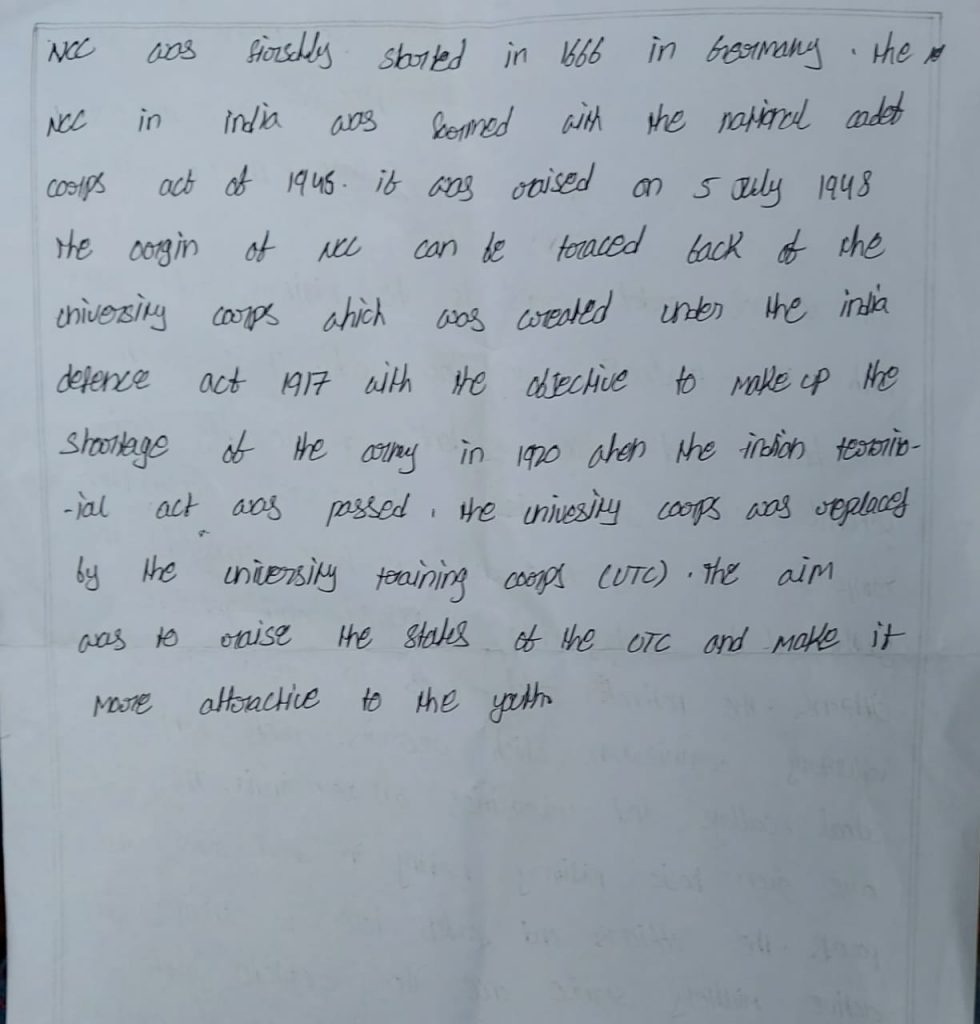 NCC was firstly started in 1666 in Germany. the
NCC in india was formed with the national cadet
corps act of 1948. it was raised on 5 July 1948
the orgin of NCC can be traced back of the
university corps which was created under the india
defence act 1917 with the objective to make up the
shortage of the army in 1920 when the indian territor-
-ial act was passed, the univesity corps was replaces
by the university training corps (UTC). the aim
was to raise the states of the UTC and make it
more attractive to the youth